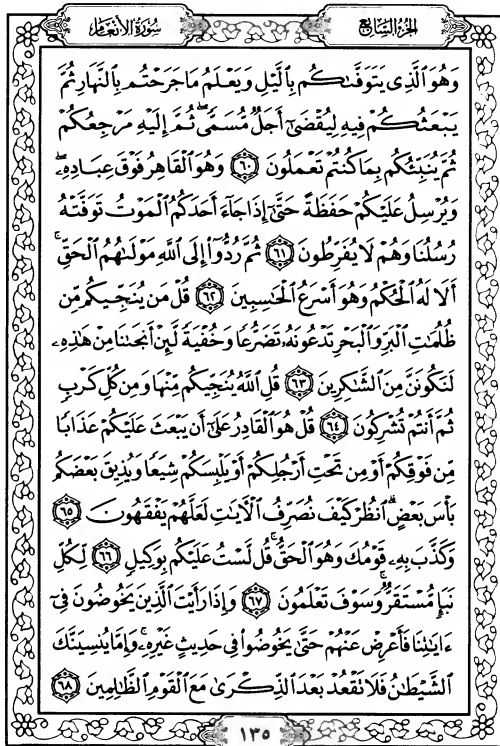 سُورَةُ الأَنْعَامِ
الجُزْءُ السَّابِعُ
وَهُوَ ٱلَّذِي يَتَوَفَّىٰكُم بِٱلَّيْلِ وَيَعْلَمُ مَا جَرَحْتُم بِٱلنَّهَارِ ثُمَّ
يَبْعَثُكُمْ فِيهِ لِيُقْضَىٰٓ أَجَلٌ مُّسَمًّى ۖ ثُمَّ إِلَيْهِ مَرْجِعُكُمْ
ثُمَّ يُنَبِّئُكُم بِمَا كُنتُمْ تَعْمَلُونَ ٦٠ وَهُوَ ٱلْقَاهِرُ فَوْقَ عِبَادِهِۦ ۖ
وَيُرْسِلُ عَلَيْكُمْ حَفَظَةً حَتَّىٰٓ إِذَا جَآءَ أَحَدَكُمُ ٱلْمَوْتُ تَوَفَّتْهُ
رُسُلُنَا وَهُمْ لَا يُفَرِّطُونَ ٦١ ثُمَّ رُدُّوٓا۟ إِلَى ٱللَّهِ مَوْلَىٰهُمُ ٱلْحَقِّ ۚ
أَلَا لَهُ ٱلْحُكْمُ وَهُوَ أَسْرَعُ ٱلْحَٰسِبِينَ ٦٢ قُلْ مَن يُنَجِّيكُم مِّن
ظُلُمَٰتِ ٱلْبَرِّ وَٱلْبَحْرِ تَدْعُونَهُۥ تَضَرُّعًا وَخُفْيَةً لَّئِنْ أَنجَىٰنَا مِنْ هَٰذِهِۦ
لَنَكُونَنَّ مِنَ ٱلشَّٰكِرِينَ ٦٣ قُلِ ٱللَّهُ يُنَجِّيكُم مِّنْهَا وَمِن كُلِّ كَرْبٍ
ثُمَّ أَنتُمْ تُشْرِكُونَ ٦٤ قُلْ هُوَ ٱلْقَادِرُ عَلَىٰٓ أَن يَبْعَثَ عَلَيْكُمْ عَذَابًا
مِّن فَوْقِكُمْ أَوْ مِن تَحْتِ أَرْجُلِكُمْ أَوْ يَلْبِسَكُمْ شِيَعًا وَيُذِيقَ بَعْضَكُم
بَأْسَ بَعْضٍ ۗ ٱنظُرْ كَيْفَ نُصَرِّفُ ٱلْـَٔايَٰتِ لَعَلَّهُمْ يَفْقَهُونَ ٦٥
وَكَذَّبَ بِهِۦ قَوْمُكَ وَهُوَ ٱلْحَقُّ ۚ قُل لَّسْتُ عَلَيْكُم بِوَكِيلٍ ٦٦ لِّكُلِّ
نَبَإٍ مُّسْتَقَرٌّ ۚ وَسَوْفَ تَعْلَمُونَ ٦٧ وَإِذَا رَأَيْتَ ٱلَّذِينَ يَخُوضُونَ فِىٓ
ءَايَٰتِنَا فَأَعْرِضْ عَنْهُمْ حَتَّىٰ يَخُوضُوا۟ فِى حَدِيثٍ غَيْرِهِۦ ۚ وَإِمَّا يُنسِيَنَّكَ
ٱلشَّيْطَٰنُ فَلَا تَقْعُدْ بَعْدَ ٱلذِّكْرَىٰ مَعَ ٱلْقَوْمِ ٱلظَّٰلِمِينَ ٦٨
١٣٥